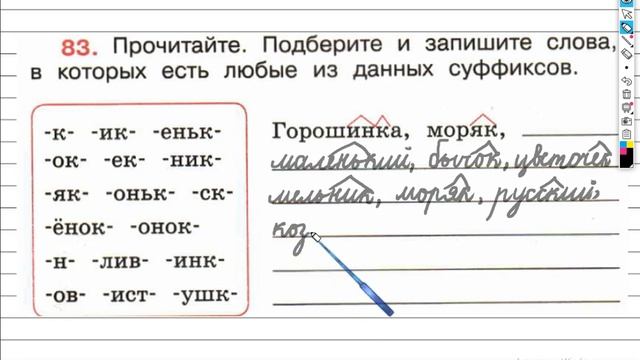 83. Прочитайте. Подберите и запишите слова,
в которых есть любые из данных суффиксов.
-к- -ик- -еньк-
-ок- -ек- -ник-
-як- -оньк- -ск-
-ёнок- -онок-
-н- -лив- -инк-
-ов- -ист- -ушк-
Горошинка, моряк,
маленький, бычок, цветочек
мельник, моряк, русский,
коз